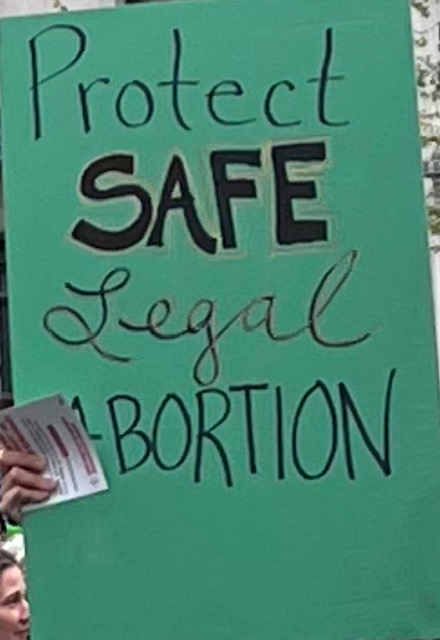 Protect
SAFE
Legal
ABORTION